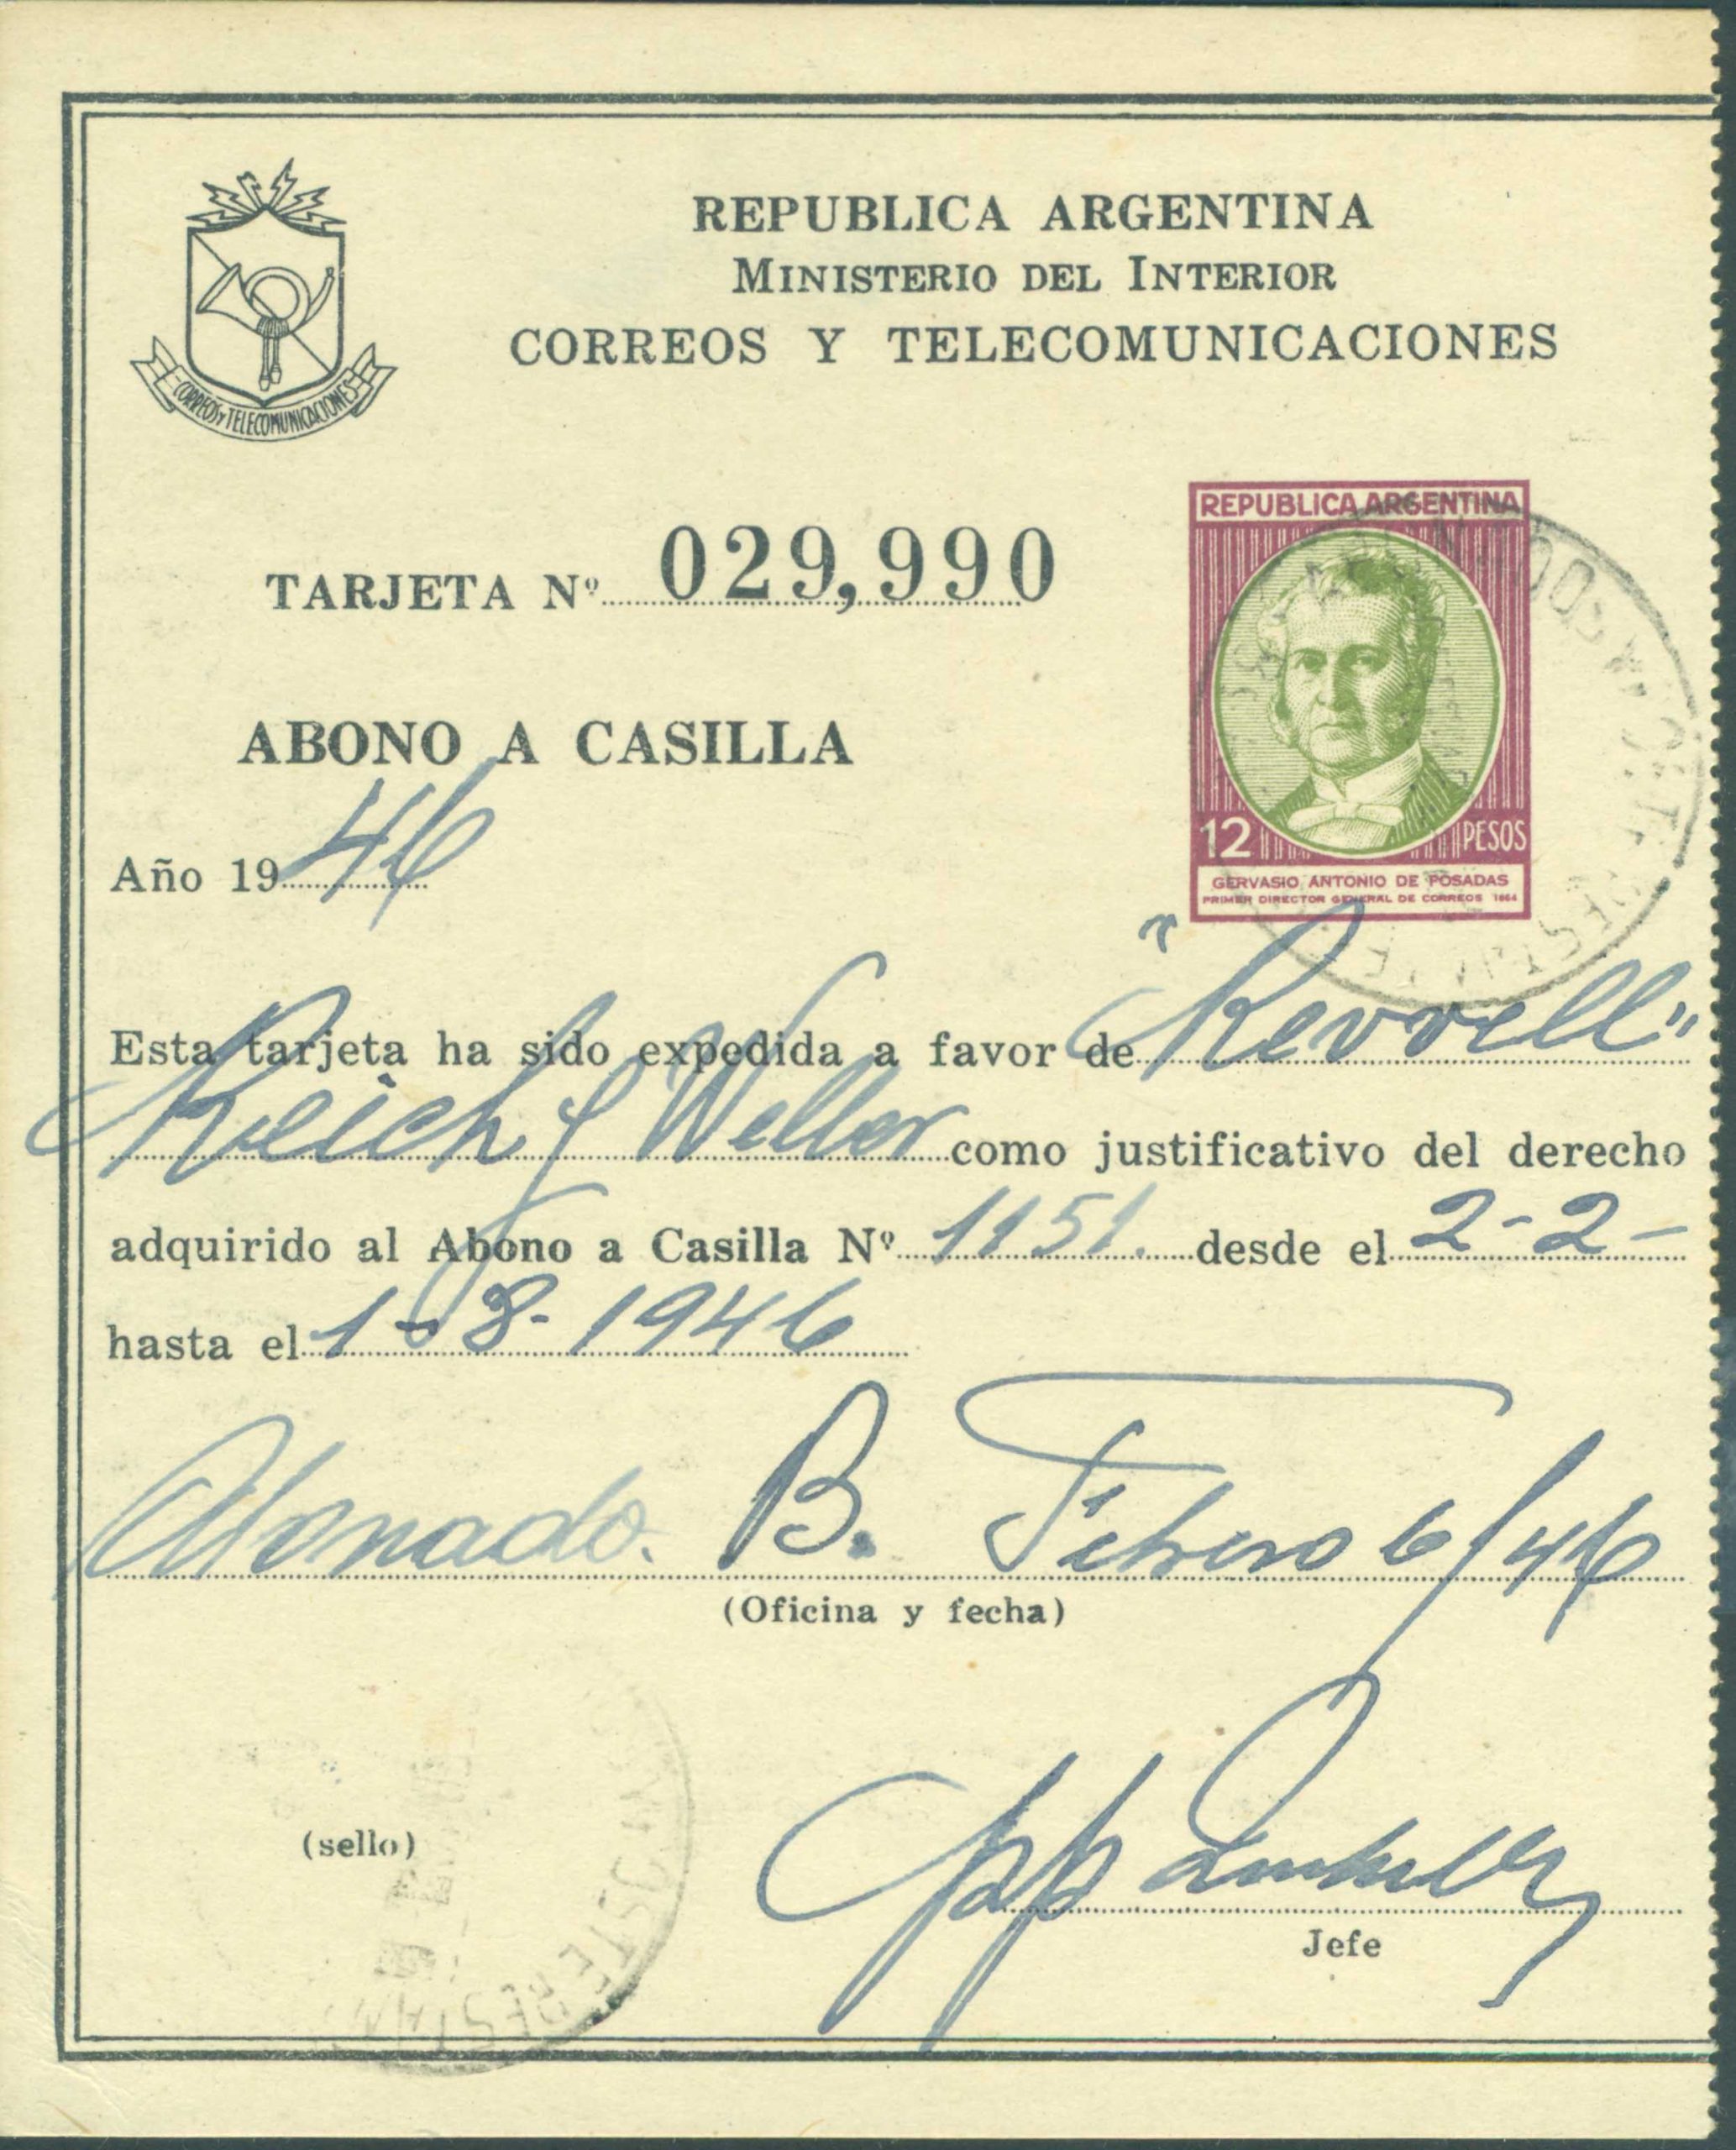 CORREOS Y TELECOMUNICACIONES
REPUBLICA ARGENTINA
MINISTERIO DEL INTERIOR
CORREOS Y TELECOMUNICACIONES
TARJETA Nº 029,990
REPUBLICA ARGENTINA
12 PESOS
GERVASIO ANTONIO DE POSADAS
PRIMER DIRECTOR GENERAL DE CORREOS
ABONO A CASILLA
Año 1946
Esta tarjeta ha sido expedida a favor de "Revvell"
Reich y Weller como justificativo del derecho
adquirido al Abono a Casilla Nº 1151. desde el 2-2-
hasta el 1-8-1946
Abonado. B. Febrero 6/46
(Oficina y fecha)
(sello)
Jefe